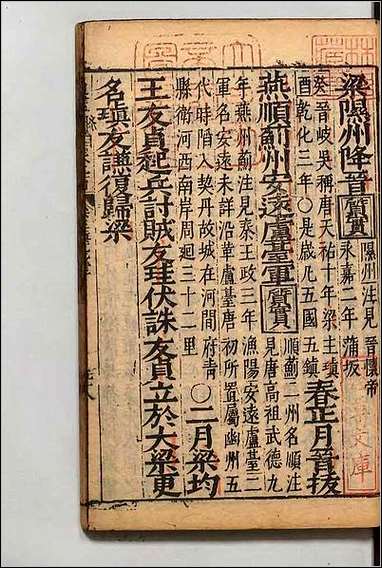 梁隰州降晉 質實 隰州注見晉懷帝
永嘉二年蒲坂
癸晉岐吳稱唐天祐十年梁主瑱
酉乾化三年○是歲凡五國五鎮
春正月晉拔
燕順薊州安遠盧臺軍 質實 順薊二州名順注
見唐高祖武德九
年燕州薊注見秦王政三年漁陽安遠盧臺二
軍名安遠未詳沿革盧臺唐初所置屬幽州五
代時陷入契丹故城在河間府青
縣衛河西南岸周迴三十二里
○二月梁均
王友貞起兵討賊友珪伏誅友貞立於大梁更
名瑱友謙復歸梁
文庫